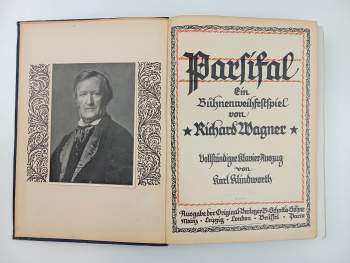 Parsifal
Ein
Bühnenweihfestspiel
von
Richard Wagner
Vollständiger Klavier-Auszug
von
Karl Klindworth
Ausgabe der Original-Verleger B. Schott's Söhne
Mainz - Leipzig - London - Brüssel - Paris